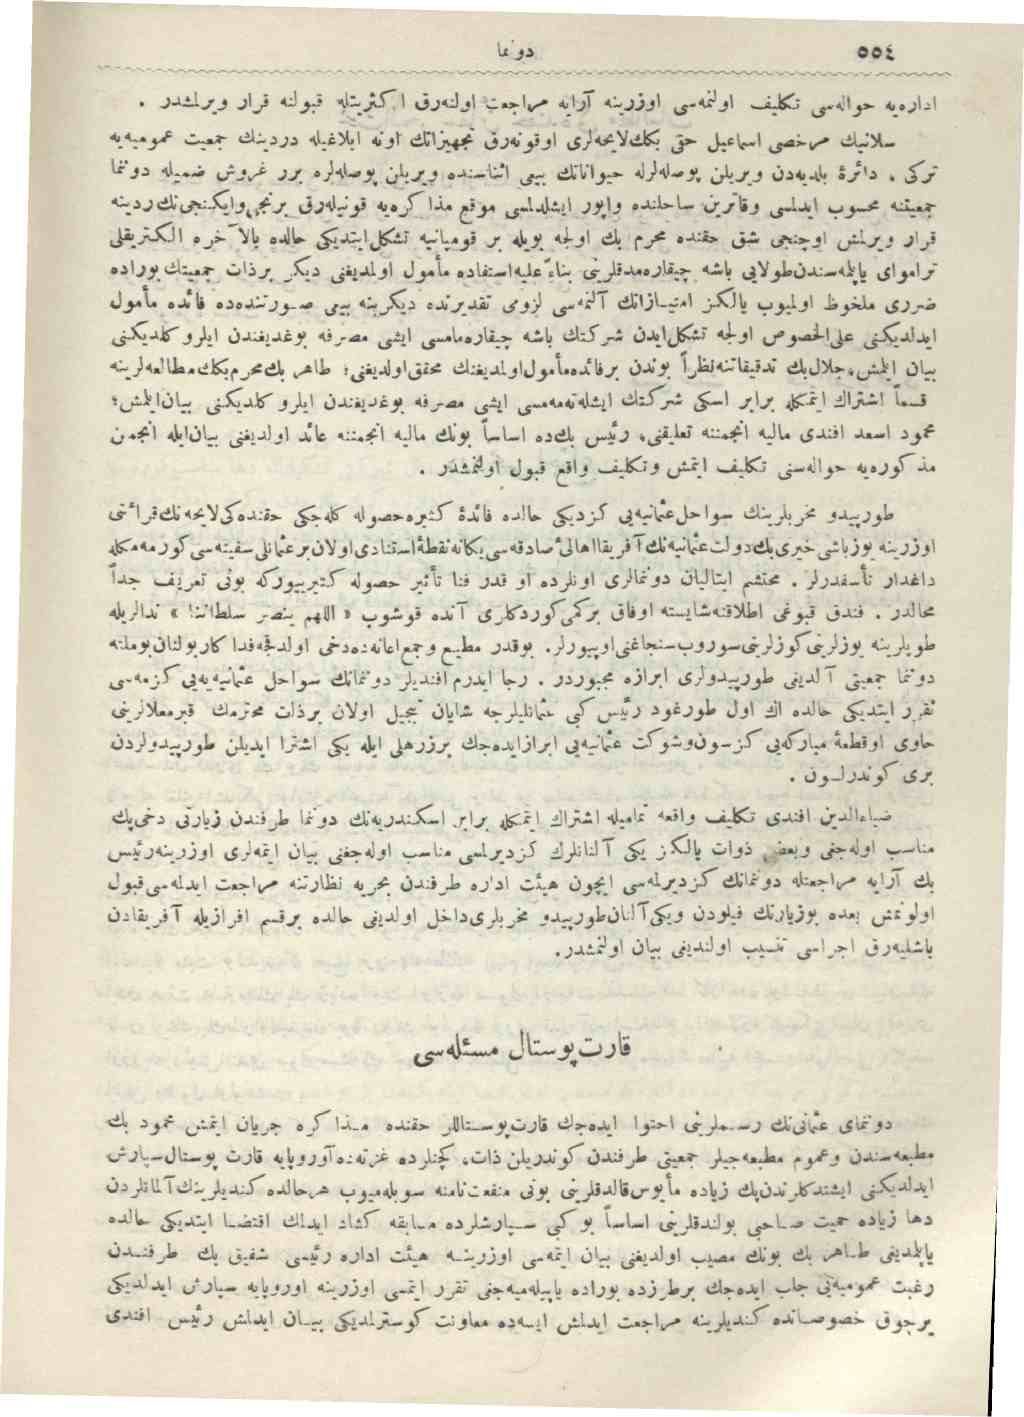 ٥٥٤
دوننما
اداره‌یه حواله‌سی تكلیف اولنمه‌سی اوزرینه آرایه مراجعت اولنه‌رق اكثریتله قبولنه قرار ویرلمشدر .
سلانیك مرخصی اسماعیل حقی بكك لایحه‌لری اوقونه‌رق تجهیزاتك اونه ابلاغیله دردینك جمعیت عمومیه‌یه
تركی ، دائرۀ بلدیه‌دن ویریلن پوصله‌لرله حیواناتك بیعی اثناسنده ویریلن پوصله‌لره برر غروش ضمیله دوننما
جمعیتنه محسوب ایدلمسی وقاترین ساحلنده واپور ایشلدلمسی موقع مذاكره‌یه قونیله‌رق برنجی وایكنجی‌نك ردینه
قرار ویرلمش اوچنجی شق حقنده محرم بك اولجه بویله بر قومپانیه تشكل ایتدیكی حالده بالآخره الكتریقلی
تراموای یاپیله‌سندن طولایی باشه چیقاره‌مدقلرینی بناءً علیه استفاده مأمول اولمدیغنی دیكر برذات جمعیتك بوراده
ضرری ملحوظ اولمیوب یالكز امتیازاتك آلنمه‌سی لزومی تقدیرنده دیكرینه بیعی صورتنده‌ده فائده مأمول
ایدلدیكنی علی‌الخصوص اولجه تشكل ایدن شركتك باشه چیقاره‌مامسی ایشی مصرفه بوغدیغندن ایلرو كلدیكنی
بیان ایلمش، جلال بك تدقیقاتنه نظراً بوندن برفائده مأمول اولمدیغنك محقق اولدیغنی؛ طاهر بك محرم بكك مطالعه‌لرینه
قسماً اشتراك ایتمكله برابر اسكی شركتك ایشله‌ته‌مه‌مسی ایشی مصرفه بوغدیغندن ایلرو كلدیكنی بیان ایلمش؛
محمود اسعد افندی مالیه انجمننه تعلیقنی، رئیس بك‌ده اساساً بونك مالیه انجمننه عائد اولدیغنی بیان ایله انجمن
مذكوره‌یه حواله‌سنی تكلیف ایتمش وتكلیف واقع قبول اولنمشدر .
طورپیدو مخربلرینك سواحل عثمانیه‌یی كزدیكی حالده فائدۀ كثیره حصوله كله‌جكی حقنده‌كی لایحه‌نك قرائتی
اوزرینه یوزباشی خیری بك دولت عثمانیه‌نك آفریقا اهالئ صادقه‌سی یكانه نقطۀ استنادی اولان برعثمانلی سفینه‌سی كورمه‌مكله
داغدار تأسفدرلر . محتشم ایتالیان دوننمالری اونلرده او قدر فنا تأثیر حصوله كتیرییوركه بونی تعریف جداً
محالدر . فندق قبوغی اطلاقنه شایسته اوفاق بركمی كوردكلری آنده قوشوب « اللهم ینصر سلطاننا » ندالریله
طوپلرینه یوزلرینی كوزلرینی سوروب سنجاغنی اوپیورلر. بوقدر مطیع وجمع اعانه‌ده دخی اولدقجه فداكار بولنان بوملته
دوننما جمعیتی آلدیغی طورپیدولری ابرازه مجبوردر . رجا ایدرم افندیلر دوننمانك سواحل عثمانیه‌یه‌یی كزمه‌سی
تقرر ایتدیكی حالده اك اول طورغود رئیس كبی عثمانلیلرجه شایان تبجیل اولان برذات محترمك قبرمعلالرینی
حاوی اوقطعۀ مباركه‌یی كزسون وشوكت عثمانیه‌یی ابراز ایده‌جك برزرهلی ایله یكی اشترا ایدیلن طورپیدولردن
بری كوندرلسون .
ضیاءالدین افندی تكلیف واقعه تمامیله اشتراك ایتمكله برابر اسكندریه‌نك دوننما طرفندن زیارتی دخی پك
مناسب اوله‌جغی وبعض ذوات یالكز یكی آلنانلرك كزدیرلمسی مناسب اوله‌جغنی بیان ایتمه‌لری اوزرینه رئیس
بك آرایه مراجعتله دوننمانك كزدیرلمه‌سی ایچون هیئت اداره طرفندن بحریه نظارتنه مراجعت ایدلمه‌سی قبول
اولونمش بعده بوزیارتك فیلودن ویكی آلنان طورپیدو مخربلری داخل اولدیغی حالده برقسم افرازیله آفریقادن
باشلیه‌رق اجراسی تنسیب اولندیغی بیان اولنمشدر.
قارت‌پوستال مسئله‌سی
دوننمای عثمانی‌نك رسملرینی احتوا ایده‌جك قارت‌پوستاللر حقنده مذاكره جریان ایتمش محمود بك
مطبعه‌سندن وعموم مطبعه‌جیلر جمعیتی طرفندن كوندریلن ذات، كچنلرده غزته‌ده آوروپایه قارت پوستال سپارش
ایدلدیكنی ایشتدكلرندن پك زیاده مأیوس قالدقلرینی بونی منفعت نامنه سویله‌میوب هرحالده كندیلرینك آلمانلردن
دها زیاده حمیت صاحبی بولندقلرینی اساساً بو كبی سپارشلرده مسابقه كشاد ایدلمك اقتضا ایتدیكی حالده
یاپلمدیغی طاهر بك بونك مصیب اولدیغنی بیان ایتمه‌سی اوزرینه هیئت اداره رئیسی شفیق بك طرفندن
رغبت عمومیه‌یی جلب ایده‌جك برطرزده بوراده یاپیله‌میه‌جغی تقرر ایتمسی اوزرینه اوروپایه سپارش ایدلدیكی
برچوق خصوصاتده كندیلرینه مراجعت ایدلمش ایسه‌ده معاونت كوسترلمدیكی بیان ایدلمش رئیس افندی